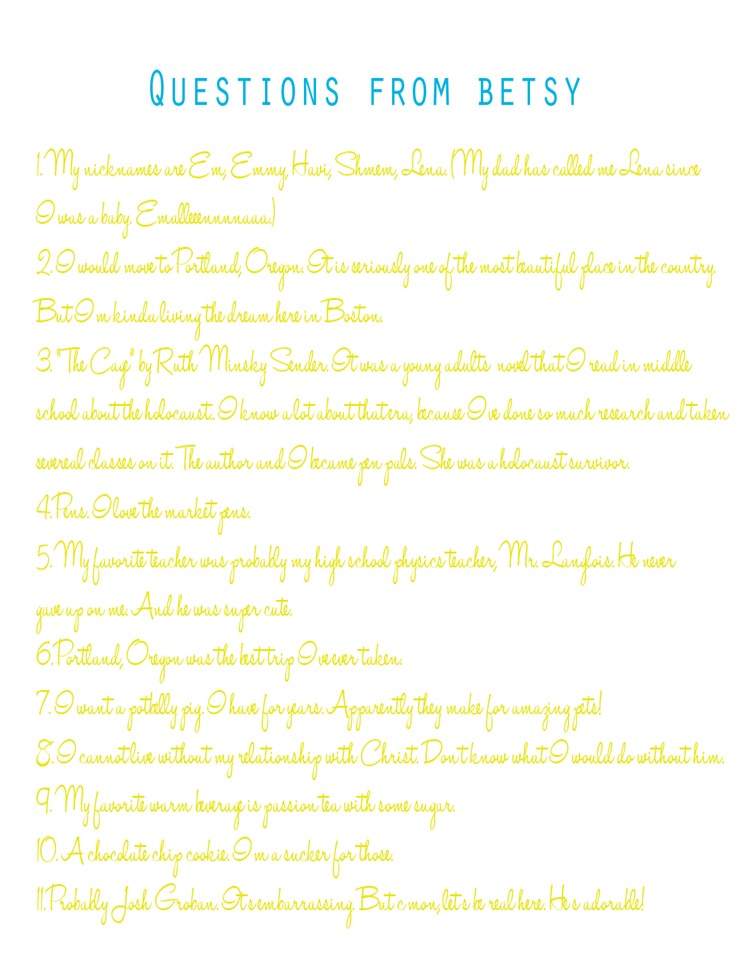 Questions from betsy
1. My nicknames are Em, Emmy, Havi, Shmem, Lena. (My dad has called me Lena since
I was a baby. Emalleeennnnaaa.)
2. I would move to Portland, Oregon. It is seriously one of the most beautiful place in the country.
But I m kinda living the dream here in Boston.
3. "The Cage" by Ruth Minsky Sender. It was a young adults novel that I read in middle
school about the holocaust. I know a lot about that era, because I ve done so much research and taken
severeal classes on it. The author and I became pen pals. She was a holocaust survivor.
4. Pens. I love the market pens.
5. My favorite teacher was probably my high school physics teacher, Mr. Langlois. He never
gave up on me. And he was super cute.
6. Portland, Oregon was the best trip I ve ever taken.
7. I want a potbelly pig. I have for years. Apparently they make for amazing pets!
8. I cannot live without my relationship with Christ. Don t know what I would do without him.
9. My favorite warm beverage is passion tea with some sugar.
10. A chocolate chip cookie. I m a sucker for those.
11. Probably Josh Groban. It s embarrassing. But c mon, let s be real here. He s adorable!